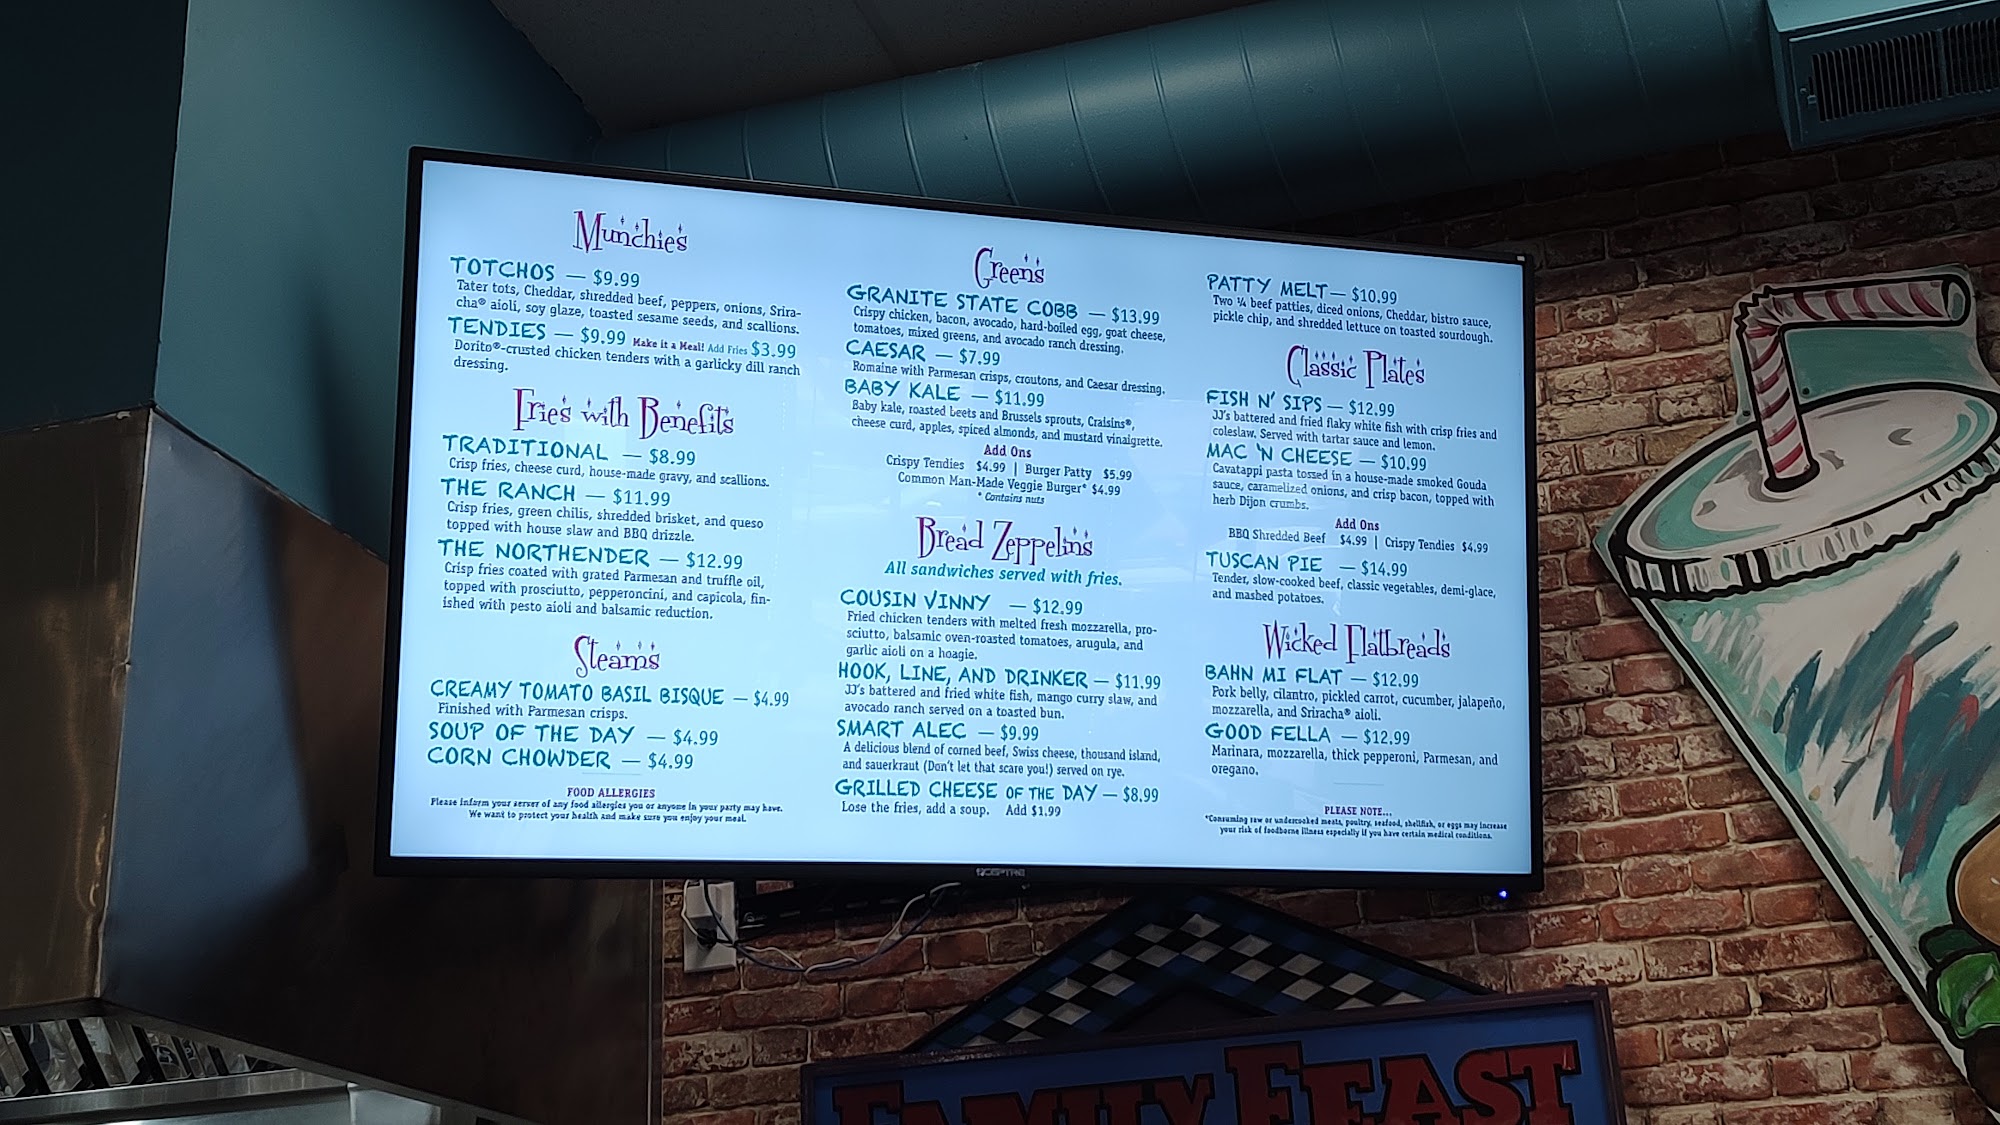 Munchies
TOTCHOS — $9.99
Tater tots, Cheddar, shredded beef, peppers, onions, Srira-
cha® aioli, soy glaze, toasted sesame seeds, and scallions.
TENDIES — $9.99 Make it a Meal! Add Fries $3.99
Dorito®-crusted chicken tenders with a garlicky dill ranch
dressing.
Fries with Benefits
TRADITIONAL — $8.99
Crisp fries, cheese curd, house-made gravy, and scallions.
THE RANCH — $11.99
Crisp fries, green chilis, shredded brisket, and queso
topped with house slaw and BBQ drizzle.
THE NORTHENDER — $12.99
Crisp fries coated with grated Parmesan and truffle oil,
topped with prosciutto, pepperoncini, and capicola, fin-
ished with pesto aioli and balsamic reduction.
Steams
CREAMY TOMATO BASIL BISQUE — $4.99
Finished with Parmesan crisps.
SOUP OF THE DAY — $4.99
CORN CHOWDER — $4.99
FOOD ALLERGIES
Please inform your server of any food allergies you or anyone in your party may have.
We want to protect your health and make sure you enjoy your meal.
Greens
GRANITE STATE COBB — $13.99
Crispy chicken, bacon, avocado, hard-boiled egg, goat cheese,
tomatoes, mixed greens, and avocado ranch dressing.
CAESAR — $7.99
Romaine with Parmesan crisps, croutons, and Caesar dressing.
BABY KALE — $11.99
Baby kale, roasted beets and Brussels sprouts, Craisins®,
cheese curd, apples, spiced almonds, and mustard vinaigrette.
Add Ons
Crispy Tendies $4.99 | Burger Patty $5.99
Common Man-Made Veggie Burger* $4.99
* Contains nuts
Bread Zeppelins
All sandwiches served with fries.
COUSIN VINNY — $12.99
Fried chicken tenders with melted fresh mozzarella, pro-
sciutto, balsamic oven-roasted tomatoes, arugula, and
garlic aioli on a hoagie.
HOOK, LINE, AND DRINKER — $11.99
JJ's battered and fried white fish, mango curry slaw, and
avocado ranch served on a toasted bun.
SMART ALEC — $9.99
A delicious blend of corned beef, Swiss cheese, thousand island,
and sauerkraut (Don't let that scare you!) served on rye.
GRILLED CHEESE OF THE DAY — $8.99
Lose the fries, add a soup. Add $1.99
PATTY MELT — $10.99
Two ¼ beef patties, diced onions, Cheddar, bistro sauce,
pickle chip, and shredded lettuce on toasted sourdough.
Classic Plates
FISH N' SIPS — $12.99
JJ's battered and fried flaky white fish with crisp fries and
coleslaw. Served with tartar sauce and lemon.
MAC 'N CHEESE — $10.99
Cavatappi pasta tossed in a house-made smoked Gouda
sauce, caramelized onions, and crisp bacon, topped with
herb Dijon crumbs.
Add Ons
BBQ Shredded Beef $4.99 | Crispy Tendies $4.99
TUSCAN PIE — $14.99
Tender, slow-cooked beef, classic vegetables, demi-glace,
and mashed potatoes.
Wicked Flatbreads
BAHN MI FLAT — $12.99
Pork belly, cilantro, pickled carrot, cucumber, jalapeño,
mozzarella, and Sriracha® aioli.
GOOD FELLA — $12.99
Marinara, mozzarella, thick pepperoni, Parmesan, and
oregano.
PLEASE NOTE...
*Consuming raw or undercooked meats, poultry, seafood, shellfish, or eggs may increase
your risk of foodborne illness especially if you have certain medical conditions.
SCEPTRE
FAMILY FEAST